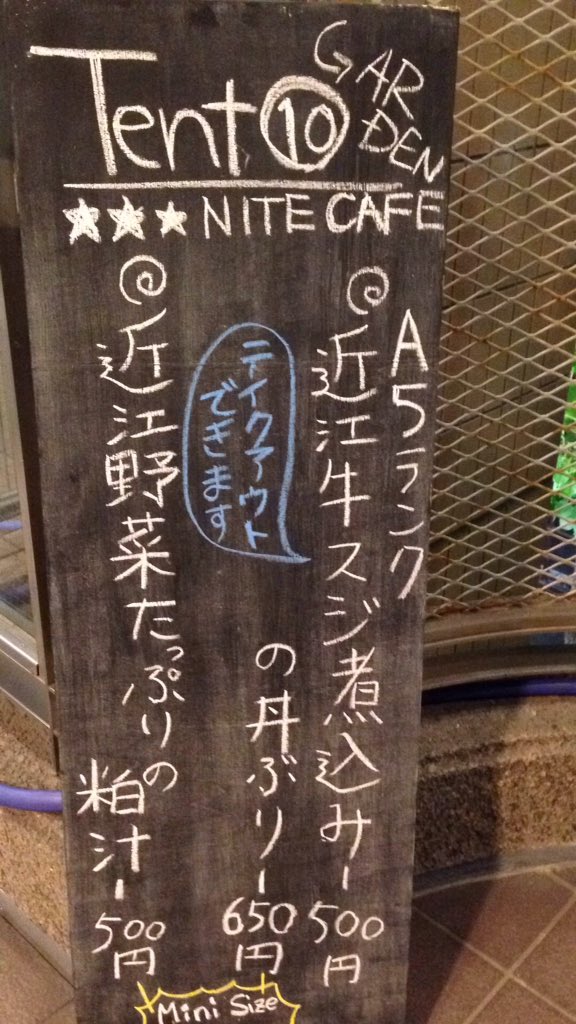 Tent⑩
GARDEN
★★★ NITE CAFE
A5ランク
近江牛スジ煮込みー500円
の丼ぶりー650円
テイクアウト
できます
近江野菜たっぷりの
粕汁ー500円
Mini Size